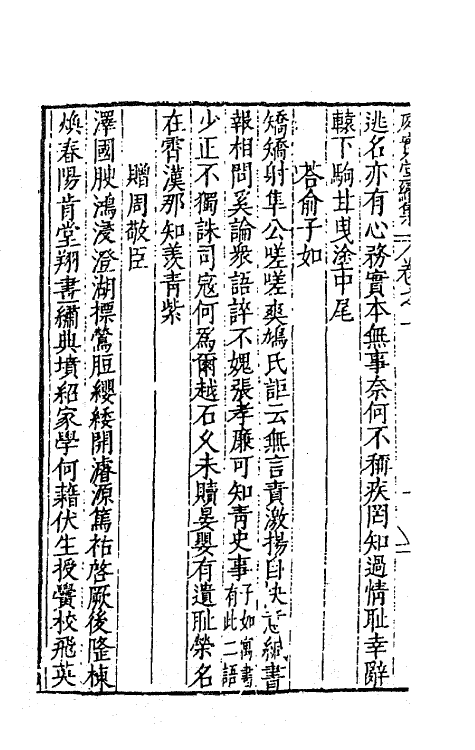 逃名亦有心務實本無事奈何不稱疾罔知過情耻幸辭
轅下駒甘曳塗中尾
荅俞子如
矯矯射隼公嗟嗟爽鳩氏詎云無言責激揚自快志緘書
報相問奚論衆語誶不媿張孝廉可知靑史事子如寓書有此二語
少正不獨誅司寇何爲爾越石父未贖晏嬰有遺耻榮名
在霄漢那知羨靑紫
贈周敬臣
澤國腴鴻浸澄湖標鶯脰纓緌開濬源篤祐啓厥後隆棟
煥春陽肯堂翔書繡典墳紹家學何藉伏生授黌校飛英